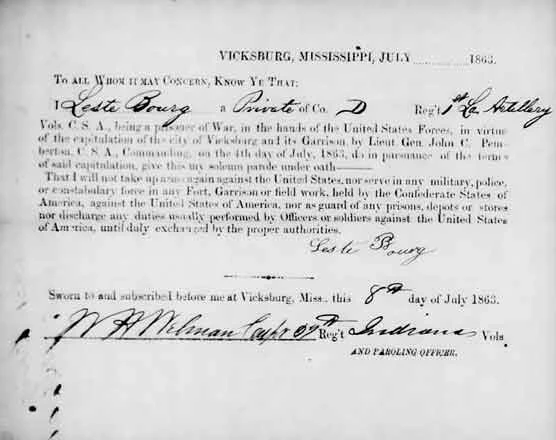 VICKSBURG, MISSISSIPPI, JULY ............ 1863.
TO ALL WHOM IT MAY CONCERN, KNOW YE THAT:
I Leste Bourg a Private of Co. D Reg't 1st La Artillery
Vols. C. S. A., being a prisoner of War, in the hands of the United States Forces, in virtue
of the capitulation of the city of Vicksburg and its Garrison, by Lieut. Gen. John C. Pem-
berton, C. S. A., Commanding, on the 4th day of July, 1863, do in pursuance of the terms
of said capitulation, give this my solemn parole under oath———
That I will not take up arms again against the United States, nor serve in any military, police,
or constabulary force in any Fort, Garrison or field work, held by the Confederate States of
America, against the United States of America, nor as guard of any prisons, depots or stores
nor discharge any duties usually performed by Officers or soldiers against the United States
of America, until duly exchanged by the proper authorities.
Leste Bourg
Sworn to and subscribed before me at Vicksburg, Miss., this 8th day of July 1863.
W H Welman Capt 99th Reg't Indiana Vols
AND PAROLING OFFICER.